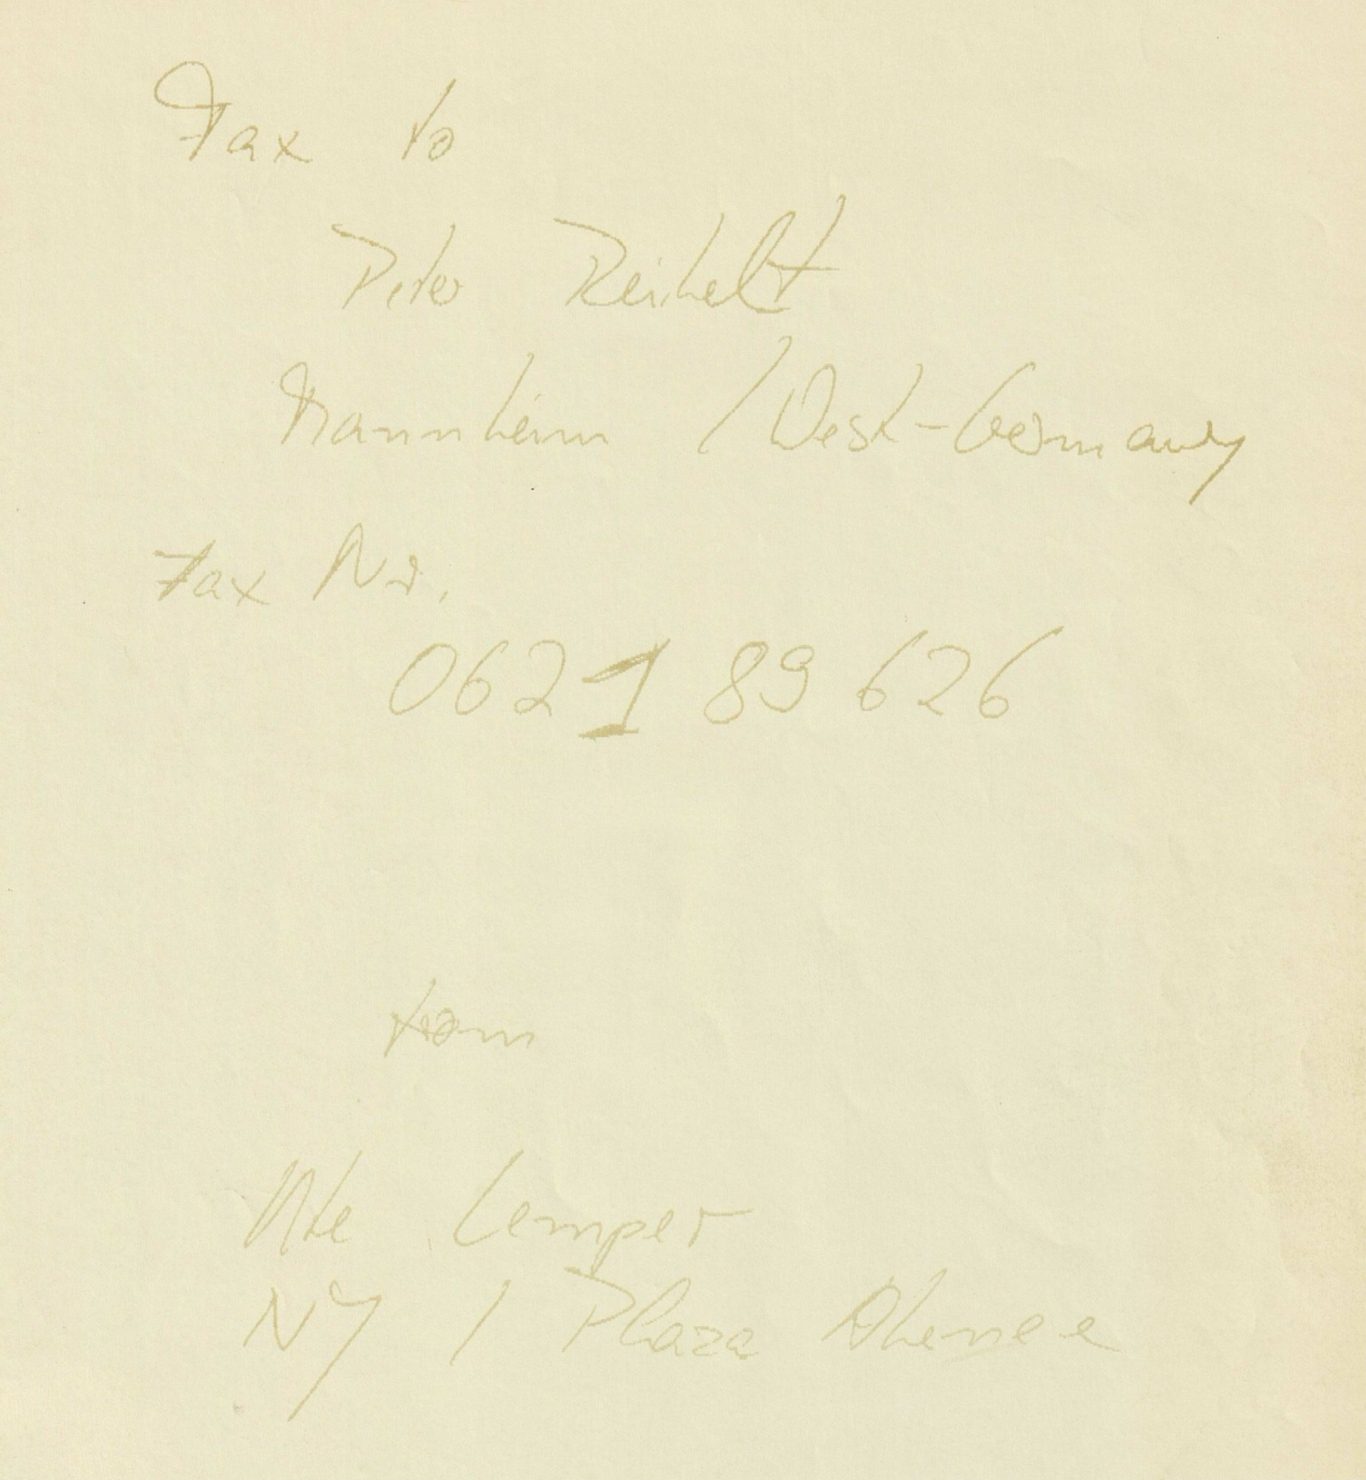 Fax to
Peter Reichelt
Mannheim / West-Germany
Fax Nr.
0621 89 626
from
Ute Lemper
NY / Plaza Athenee